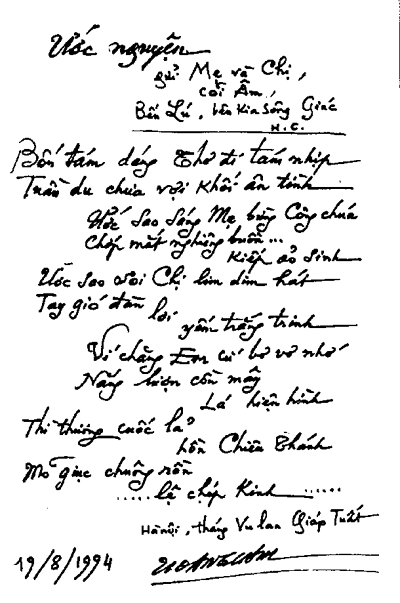 Ước nguyện
gửi Mẹ và Chị,
cõi Âm,
Bến Lú, bên kia sông Giác
H.C.
Bốn tám dáng Thơ đi tám nhịp
Trần du chưa vợi Khối ân tình
Ước sao sáng Mẹ bừng Công chúa
Chớp mắt nghiêng buồn ...
Kiếp ảo sinh
Ước sao soi Chị lim dim hát
Tay gió đàn lơi
yếm trắng trinh
Ví chăng Em cứ bơ vơ nhớ
Nắng lượn cồn mây
Lá hiện hình
Thi thương cuốc lả
hồn Chiêu Thánh
Mõ giục chuông rền
..... lệ chép Kinh ......
Hà nội, tháng Vu lan Giáp Tuất
19/8/1994